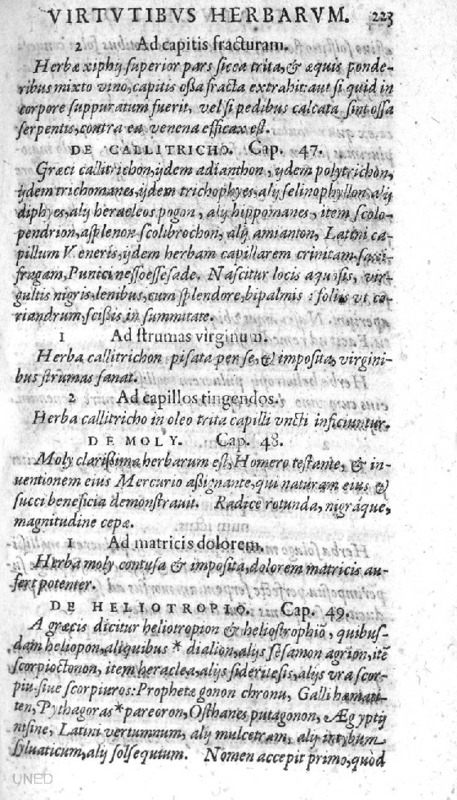 VIRTVTIBVS HERBARVM. 223
2 Ad capitis fracturam.
Herbæ xiphij superior pars sicca trita, & æquis ponde-
ribus mixto vino, capitis ossa fracta extrahit: aut si quid in
corpore suppuratum fuerit, vel si pedibus calcata sint ossa
serpentis, contra ea venena efficax est.
DE CALLITRICHO. Cap. 47.
Græci callitrichon, ijdem adianthon, ijdem polytrichon,
ijdem trichomanes, ijdem trichophyes, alij selinophyllon, alij
diphyes, alij heracleos pogon, alij hippomanes, item scolo-
pendrion, asplenon scolibrochon, alij amianton, Latini ca-
pillum Veneris, ijdem herbam capillarem crinitam, saxi-
fragam, Punici nessoessesade. Nascitur locis aquosis, vir-
gultis nigris, lenibus, cum splendore, bipalmis: folijs vt co-
riandrum, scissis in summitate.
1 Ad strumas virginum.
Herba callitrichon pisata per se, & imposita, virgini-
bus strumas sanat.
2 Ad capillos tingendos.
Herba callitricho in oleo trita capilli vncti inficiuntur.
DE MOLY. Cap. 48.
Moly clarissima herbarum est, Homero testante, & in-
uentionem eius Mercurio assignante, qui naturam eius &
succi beneficia demonstrauit. Radice rotunda, nigráque,
magnitudine cepæ.
1 Ad matricis dolorem.
Herba moly contusa & imposita, dolorem matricis au-
fert potenter.
DE HELIOTROPIO. Cap. 49.
A græcis dicitur heliotropion & heliostrophiō, quibus-
dam heliopon, aliquibus * dialion, alijs sesamon agrion, itē
scorpioctonon, item heraclea, alijs sideritesis, alijs vra scor-
piu, siue scorpiuros: Prophetæ gonon chronu, Galli hæmati-
ten, Pythagoras * pareoron, Osthanes putagonon, Ægyptij
nisine, Latini vertumnum, alij mulcetram, alij intybum
syluaticum, alij solsequium. Nomen accepit primo, quòd
UNED